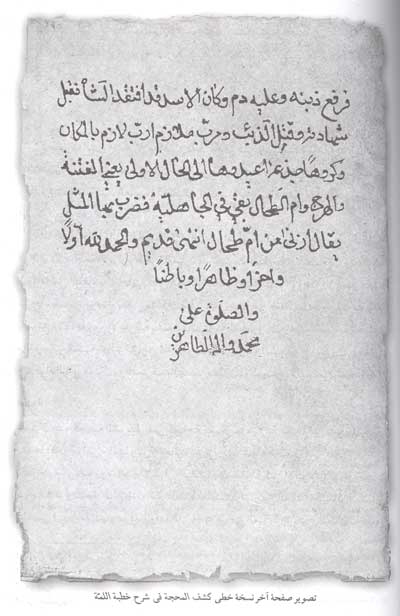 فرفع ذنبه وعليه دم وكان الاسد قد افتقد الشاة فقبل
شهادته وقتل الذئب ومرب ملازم ارب لازم بالمكان
وكروها جذعة اعيدوها الى الحال الاولى يعني الفتنة
والهرج وام الطحال بغي في الجاهلية فضرب بها المثل
يقال ازنى من ام طحال انتهى قديم والحمد لله أولاً
واخراً وظاهراً وباطناً
والصلوة على
محمد واله الطاهرين
تصویر صفحهٔ آخر نسخهٔ خطی کشف المحجة فی شرح خطبة اللمّة